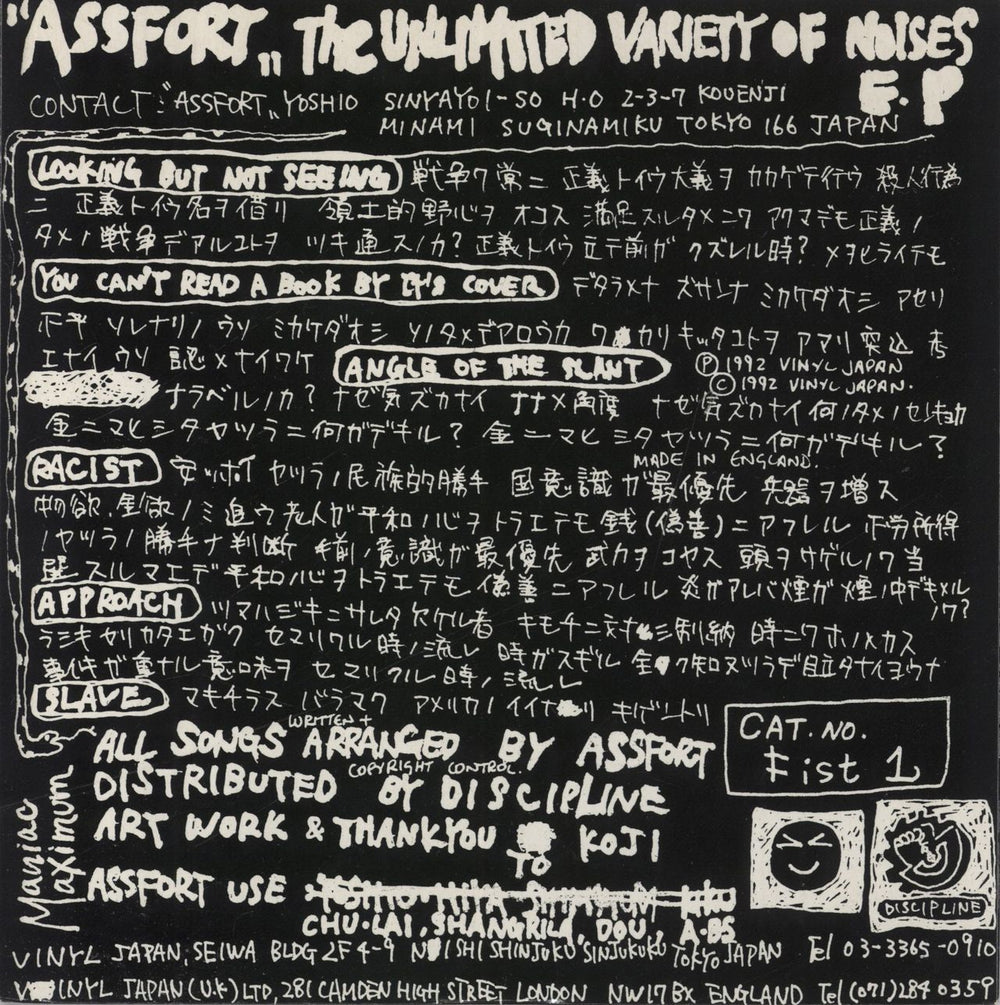 "ASSFORT„ THE UNLIMITED VARIETY OF NOISES
E.P
CONTACT: "ASSFORT„ YOSHIO SINYAYOI-SO H.O 2-3-7 KOUENJI
MINAMI SUGINAMIKU TOKYO 166 JAPAN
LOOKING BUT NOT SEEING 戦争ワ常ニ 正義トイウ大義ヲ カカゲテ行ウ 殺人行為
ニ 正義トイウ名ヲ借リ 領土的野心ヲ オコス 満足スルタメニワ アクマデモ正義ノ
タメノ戦争デアルコトヲ ツキ通スノカ? 正義トイウ立テ前ガ クズレル時? メヲヒライテモ
YOU CAN'T READ A BOOK BY IT'S COVER デタラメナ ズサンナ ミカケダオシ アセリ
下平 ソレナリノ ウソ ミカケダオシ ソノタメデアロウカ ワカリキッタコトヲ アマリ 突込 考
エナイ ウソ 認メナイワケ ANGLE OF THE SLANT Ⓟ 1992 VINYL JAPAN
© 1992 VINYL JAPAN.
ナラベルノカ? ナゼ気ズカナイ ナナメ角度 ナゼ気ズカナイ 何ノタメノ
金ニマヒシタヤツラニ何ガデキル? 金ニマヒシタヤツラニ何ガデキル?
MADE IN ENGLAND.
RACIST 安ッポイ ヤツラノ民族的勝手 国意識ガ最優先 兵器ヲ増ス
物欲.金欲ノミ追ウ老人ガ平和ノ心ヲトラエテモ銭(偽善)ニアフレル 不労所得
ノヤツラノ勝手ナ判断 手前ノ意識ガ最優先 武力ヲコヤス 頭ヲサゲルノワ当
スルマエデ平和ノ心ヲトラエテモ 偽善ニアフレル 炎ガアレバ煙ガ 煙ノ中デキメル
ノワ?
APPROACH ツマルジキニサレタ欠ケル者 キモチニ対 三制納 時ニワホノメカス
ラシキヤリカタエガク セマリクル時ノ流レ 時ガスギル 金ワ知ヌツラデ目立タナイヨウナ
事件ガ重ナル意味ヲ セマリクル時ノ流レ
SLAVE マキチラス バラマク アメリカノ イイナリ キゲントリ
CAT.NO.
Fist 1
WRITTEN +
ALL SONGS ARRANGED BY ASSFORT
COPYRIGHT CONTROL.
DISTRIBUTED BY DISCIPLINE
ART WORK & THANKYOU TO KOJI
Maniac Maximum
ASSFORT USE
CHU-LAI, SHANGRILA, DOU, A-BS
DISCIPLINE
VINYL JAPAN, SEIWA BLDG 2F 4-9 NISHI SHINJUKU SINJUKUKU TOKYO JAPAN Tel 03-3365-0910
VINYL JAPAN (U.K) LTD, 281 CAMDEN HIGH STREET LONDON NW17BX ENGLAND Tel (071) 284 0359